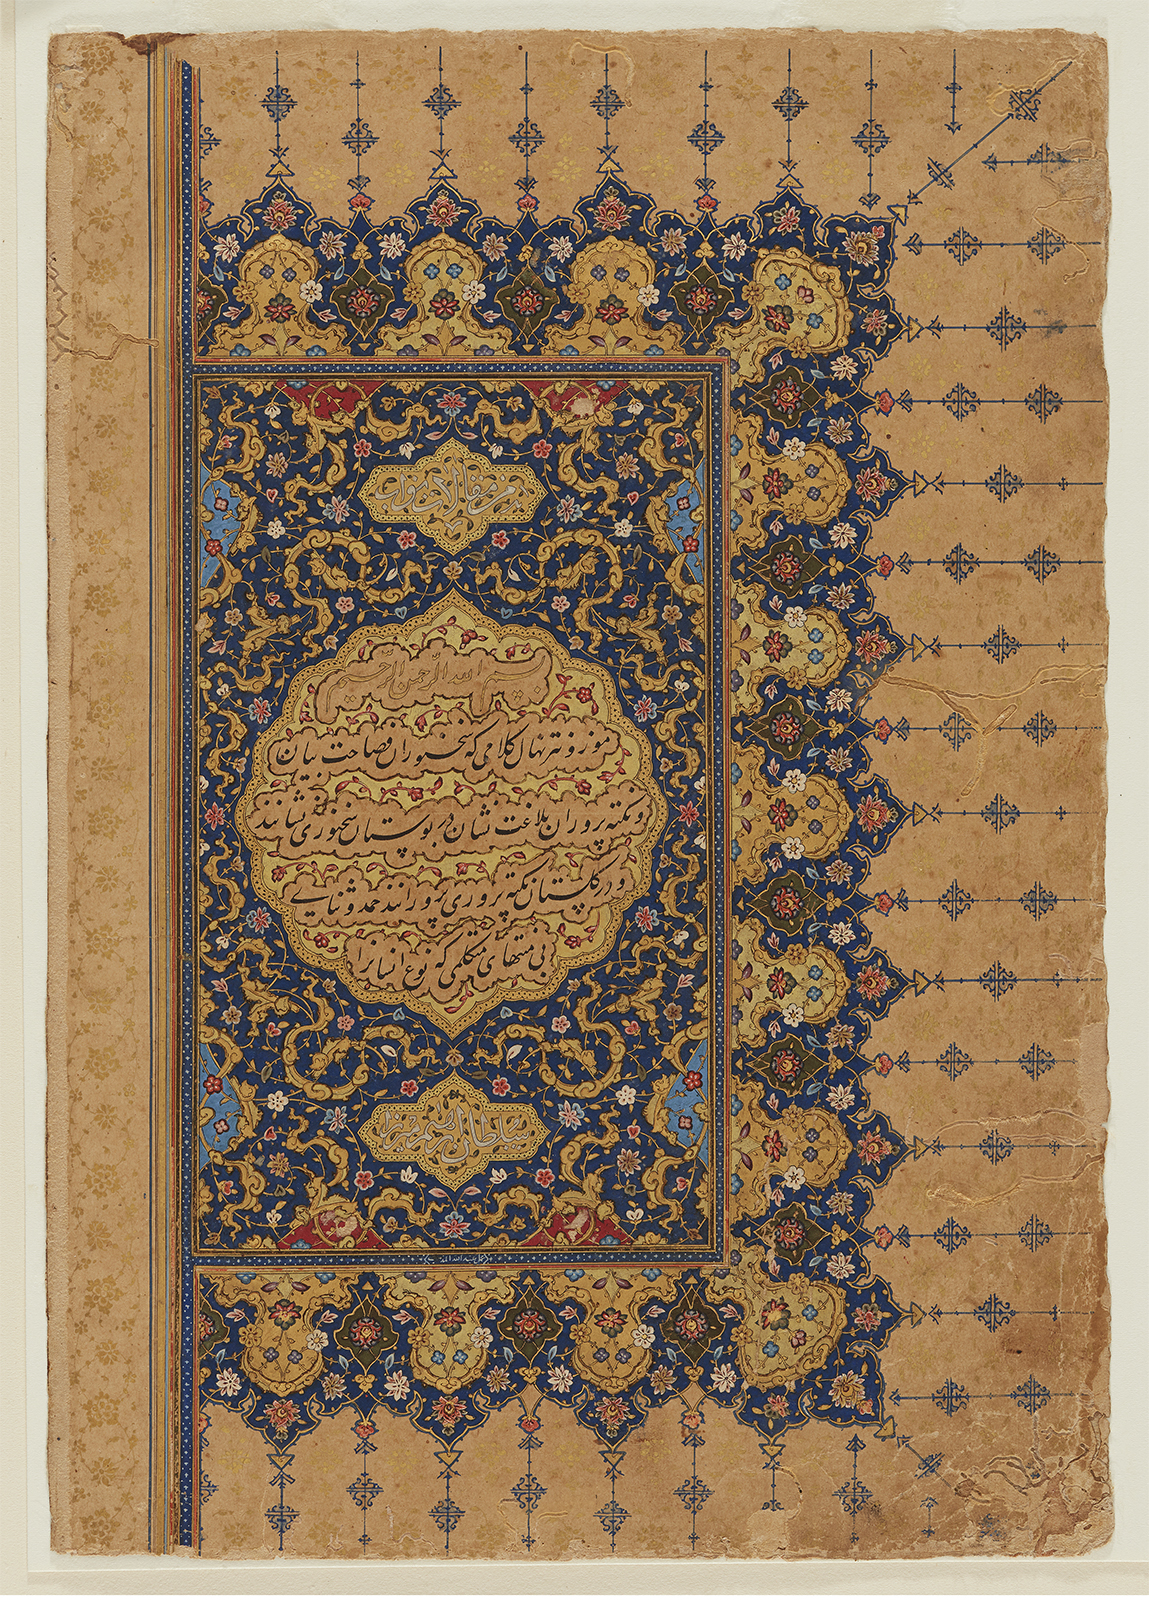 من مقالات نواب
بسم الله الرحمن الرحیم
موزونتر نهال کلامی که سخنوران فصاحت بیان
و نکته پروران بلاغت نشان در بوستان سخنوری نشانند
و در گلستان نکته پروری پرورانند حمد و ثنایی
بی منتهای متکلمی که نوع انسانرا
سلطان ابراهیم میرزا
عبدالله